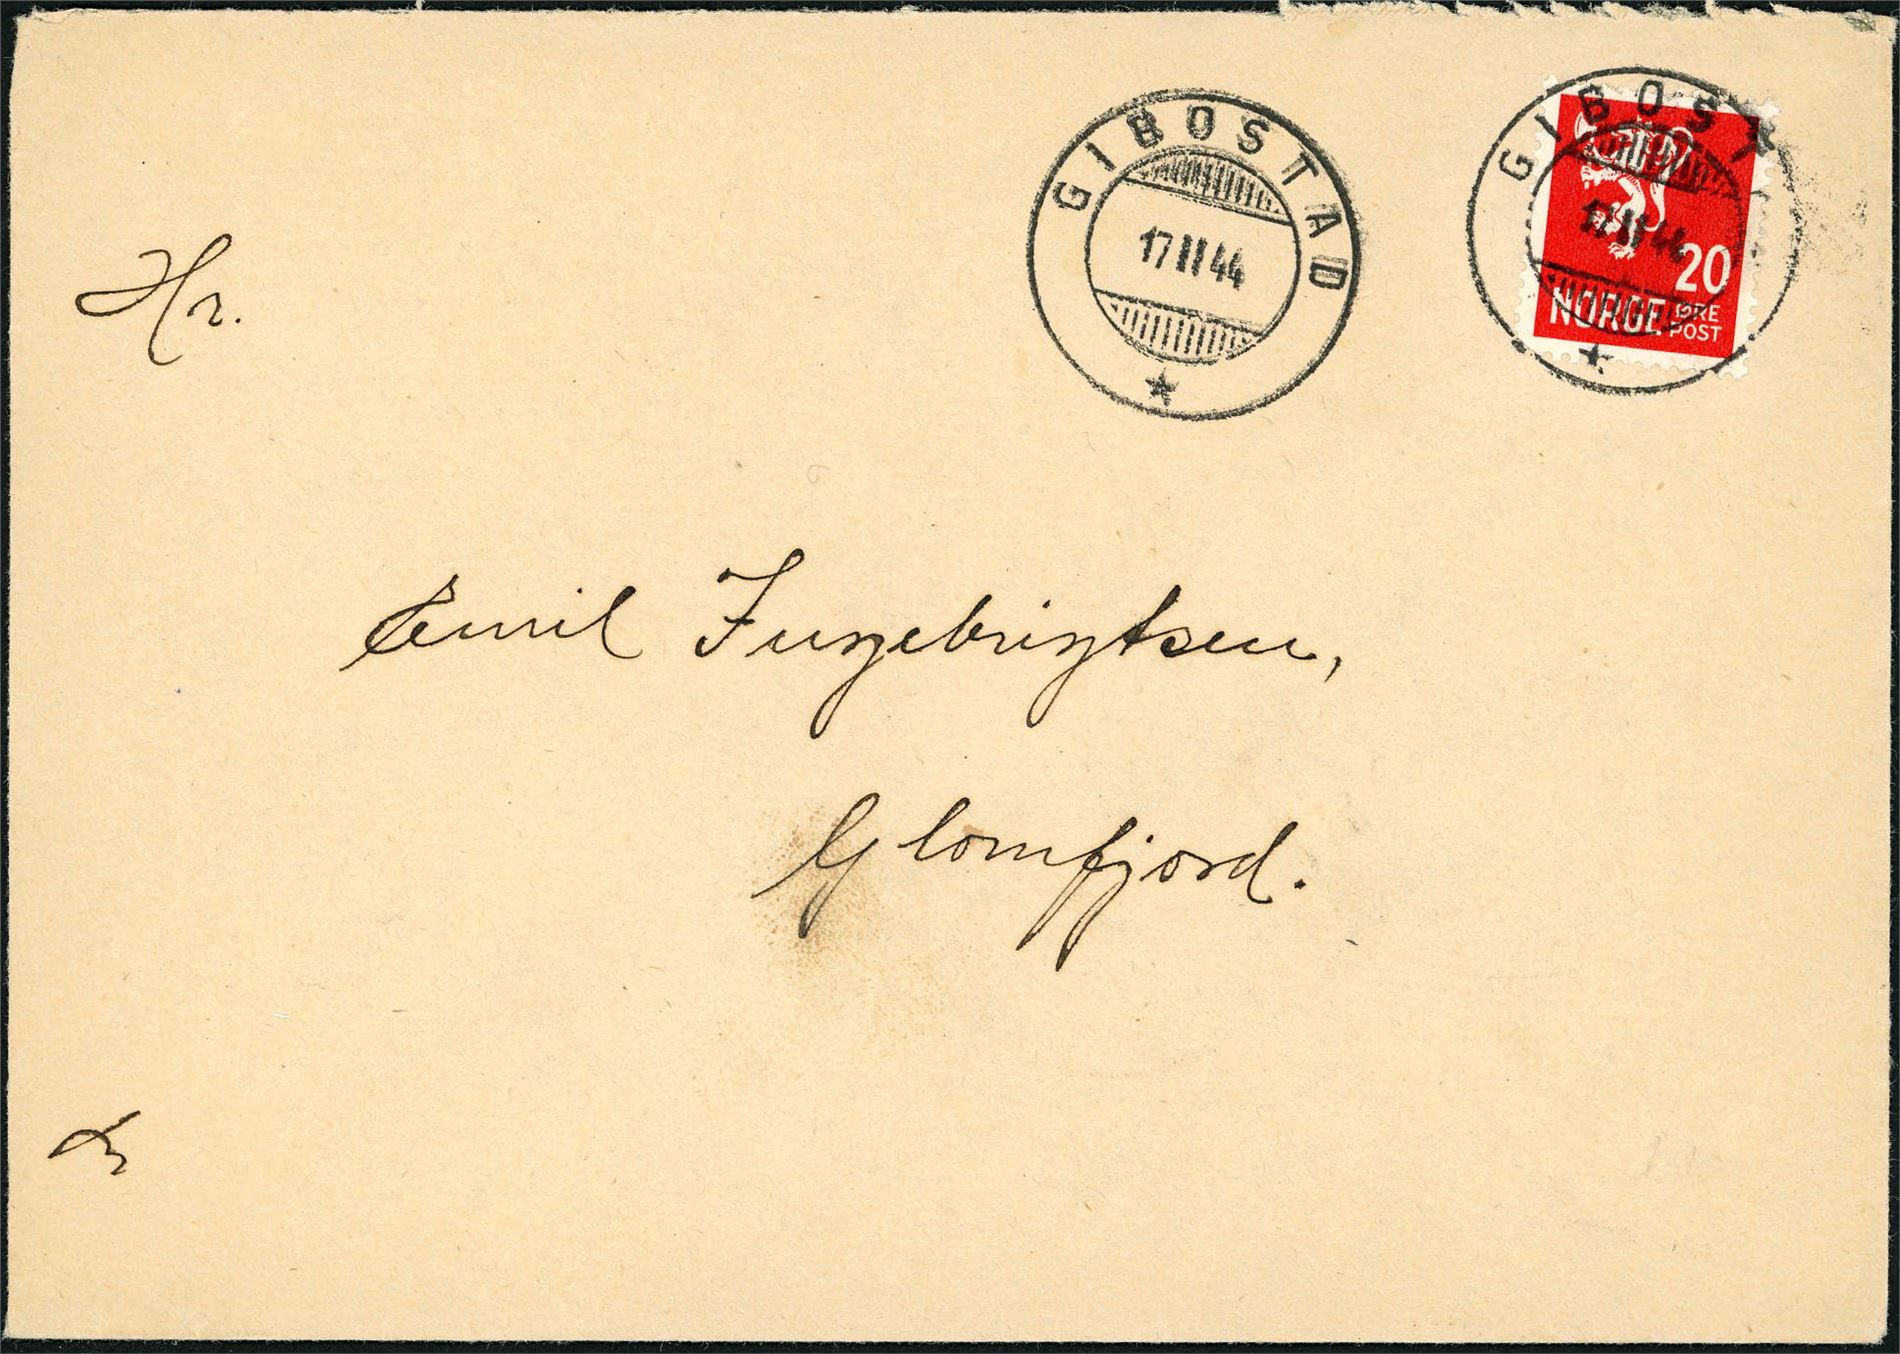 GIBOSTAD
17 II 44
GIBOST
17 II 44
20
NORGE ØRE
POST
Hr.
Emil Ingebrigtsen,
Glomfjord.